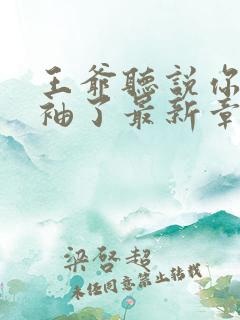 王爺聽説你
袖了最新章
梁啓超
未經同意禁止轉載